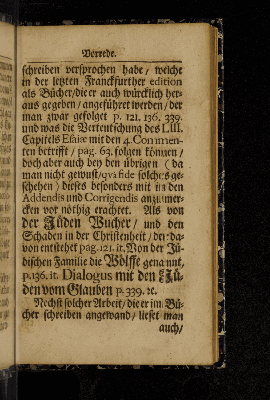 Vorrede.
schreiben versprochen habe / welche
in der letzten Franckfurther edition
als Bücher / die er auch würcklich her-
aus gegeben / angeführet werden / der
man zwar gefolget p. 121. 136. 339.
und was die Verteutschung des LIII.
Capitels Esaiæ mit den 4. Commen-
ten betrifft / pag. 63. folgen können /
doch aber auch bey den übrigen / da
man nicht gewust / qva fide solches ge-
schehen / dieses besonders mit in den
Addendis und Corrigendis anzumer-
cken vor nöthig erachtet. Als von
der Jüden Wucher / und den
Schaden in der Christenheit / der da-
von entstehet pag. 121. it. Von der Jü-
dischen Familie die Wölffe genannt,
p. 136. it. Dialogus mit den Jü-
den vom Glauben p. 339. ꝛc.
Nechst solcher Arbeit / die er im Bü-
cher schreiben angewand / lieset man
auch /